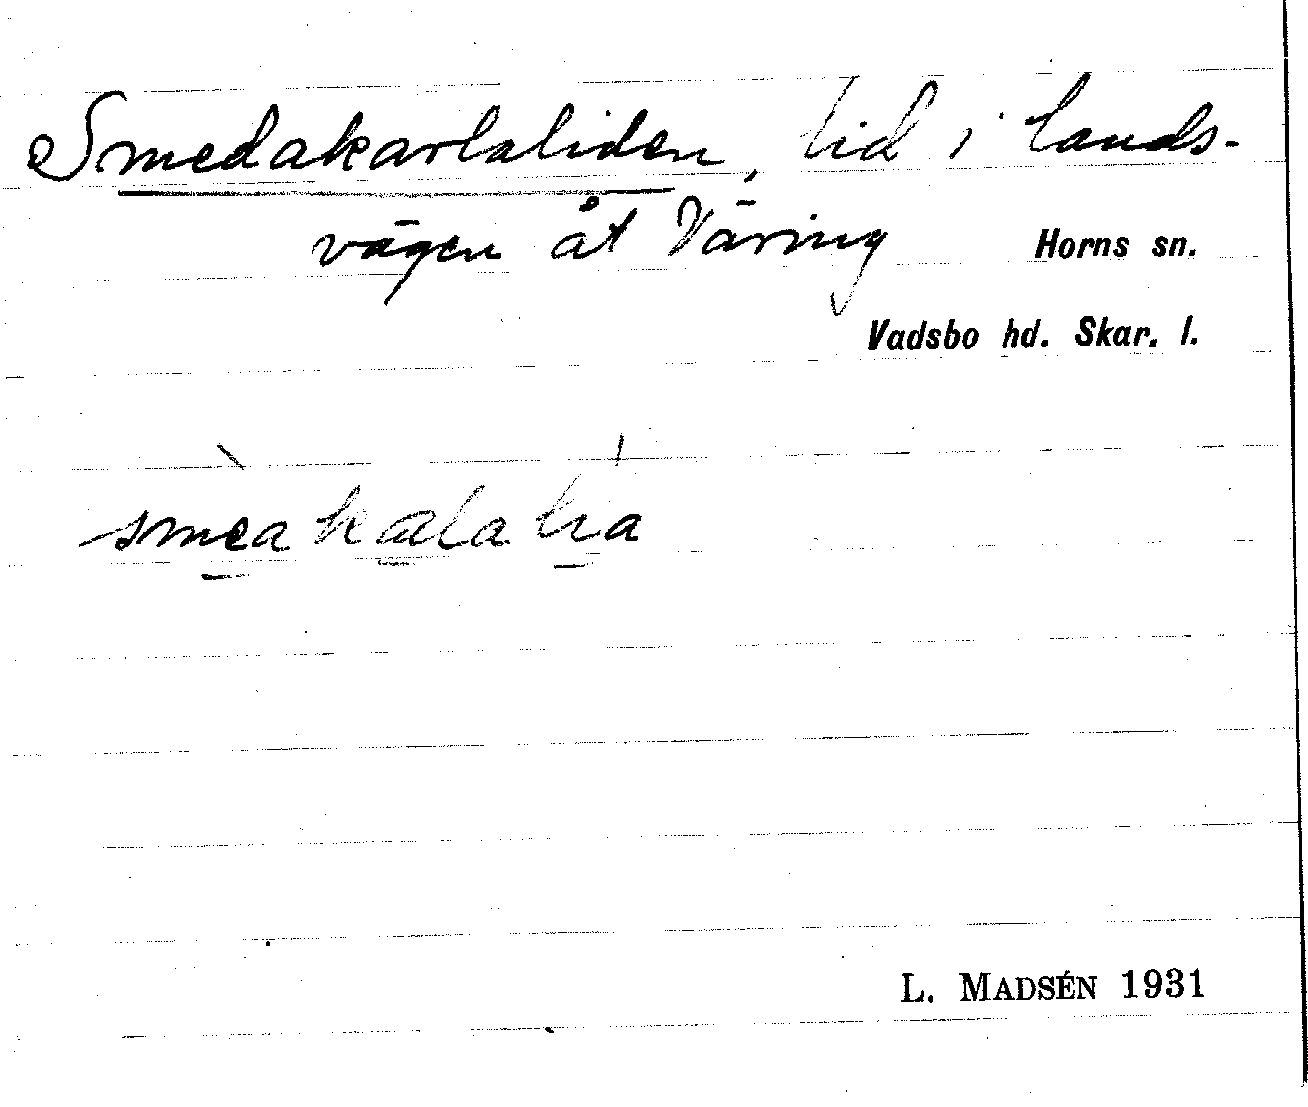 Smedakarlaliden, lid i lands-
vägen åt Väring
Horns sn.
Vadsbo hd. Skar. l.
smeakala lia
L. MADSÉN 1931